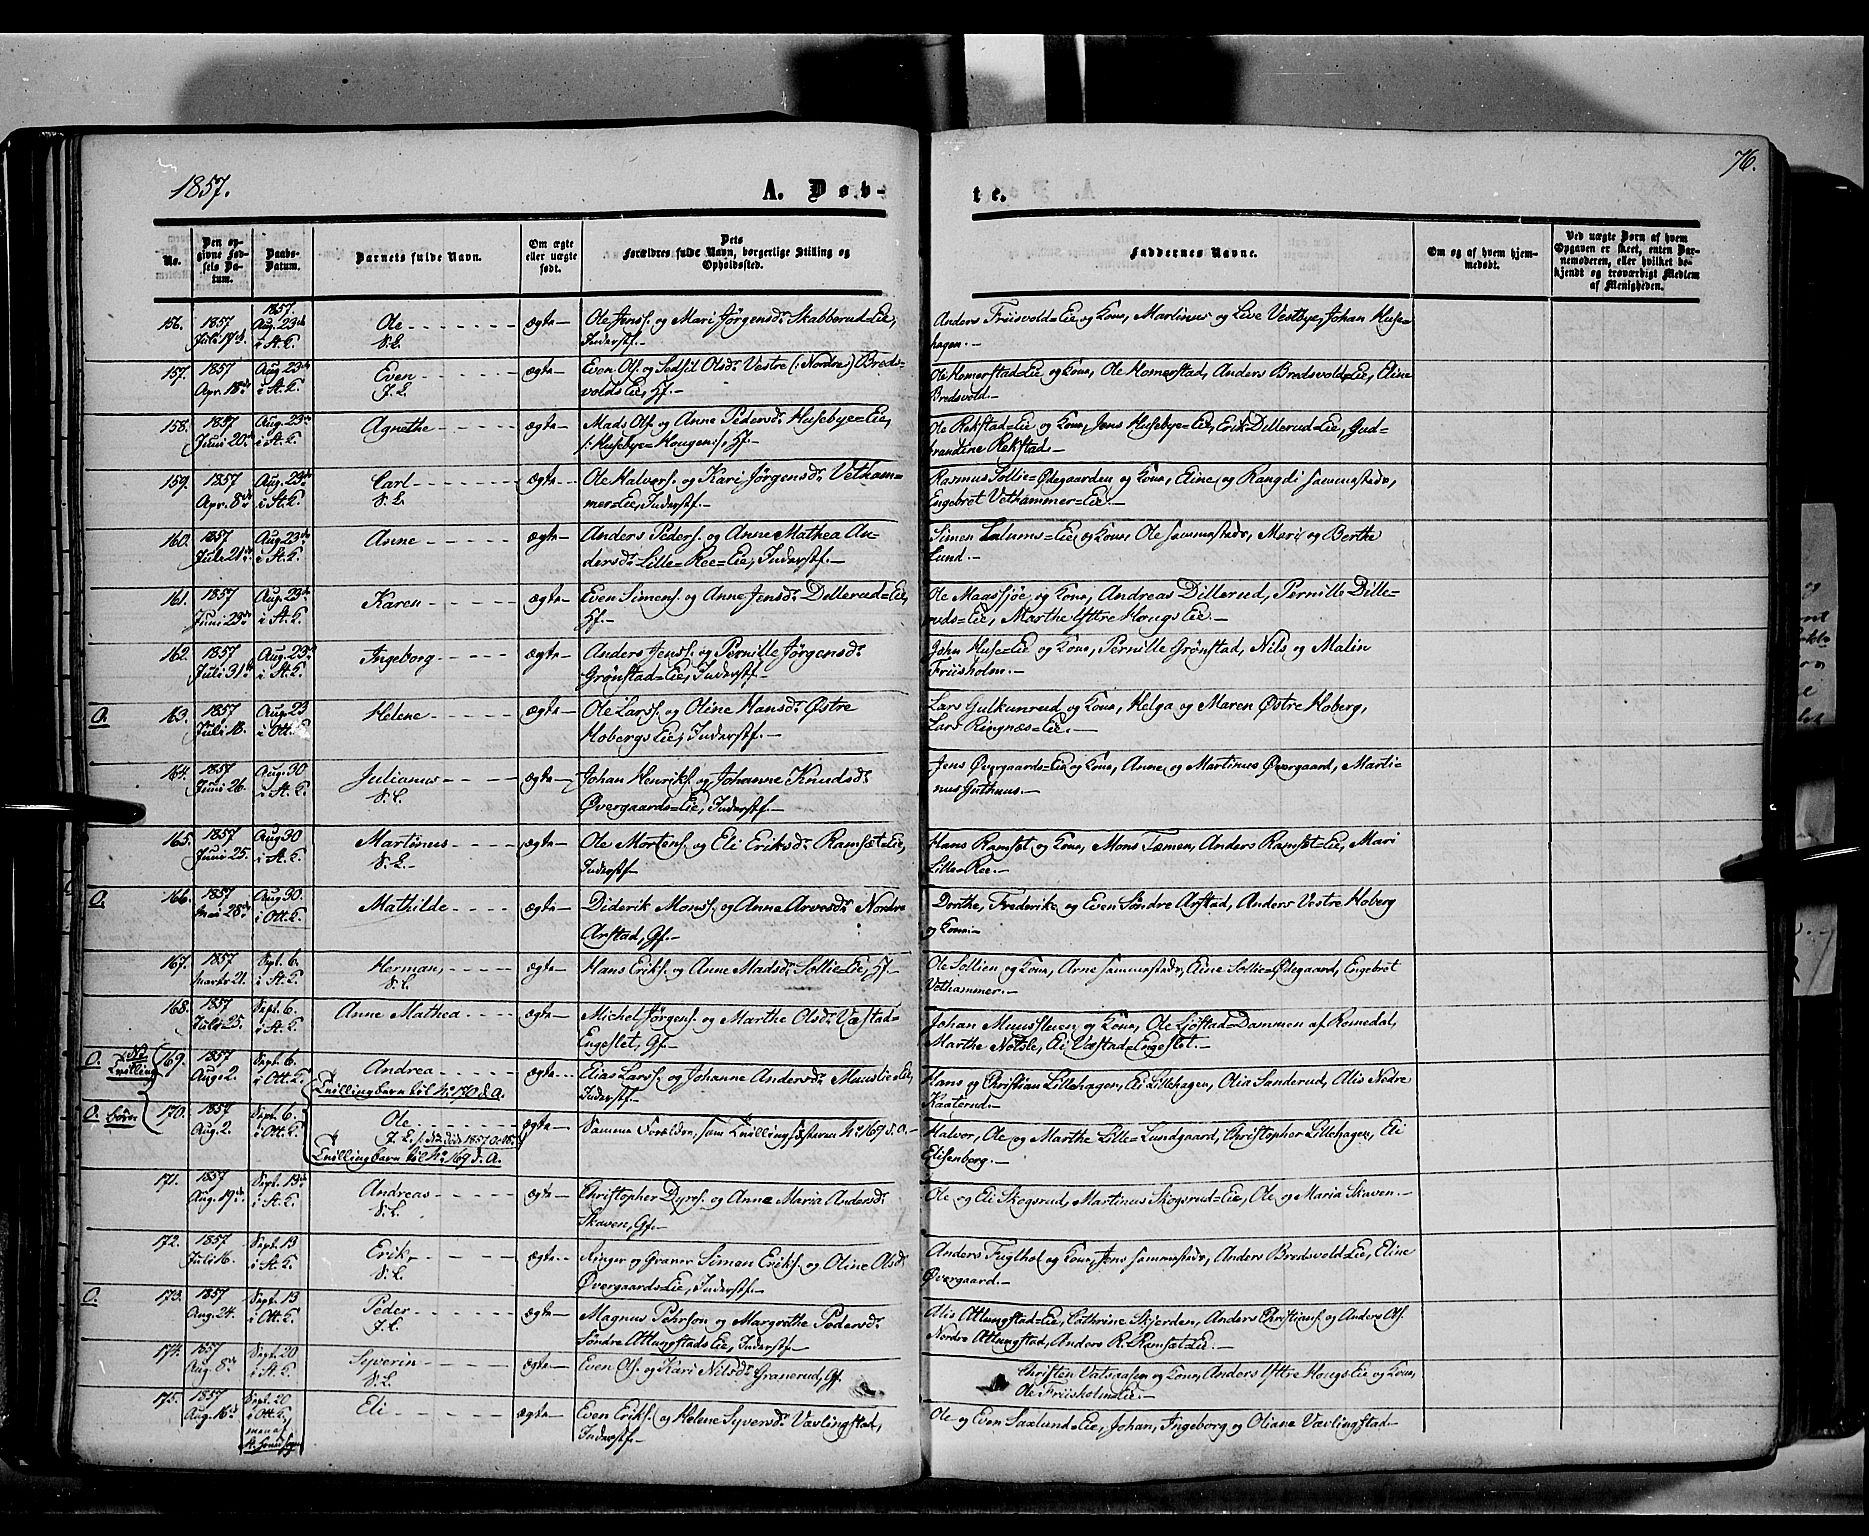 76.
1857.
A. Døb-
te.
No.
Den op-
givne Fød-
sels Da-
tum.
Daabs-
Datum.
Barnets fulde Navn.
Om ægte
eller uægte
født.
Dets
Forældres fulde Navn, borgerlige Stilling og
Opholdssted.
Faddernes Navne.
Om og af hvem hjem-
medøbt.
Ved uægte Børn af hvem
Opgaven er skeet, enten Bar-
nemoderen, eller hvilket be-
kjendt og troværdigt Medlem
af Menigheden.
156. 1857 Juli 19 1857. Aug. 23 i St. K. Ole S. L. ægte Ole Jens. og Mari Jørgensd. Skabberud=Eie, Inderst. Anders Friisvold=Eie og Kone, Martinus og Live Vestbye, Johan Huse-
hagen.
157. 1857 Apr. 18 Aug. 23 i St. K. Even J. L. ægte Even Ols. og Sidsil Olsd. Vestre (: Nordre) Breds-
volds Eie, Hf. Ole Homerstad=Eie og Kone, Ole Homerstad, Anders Bredsvold=Eie, Eline
Bredsvold.
158. 1857 Juni 20 Aug. 23 i St. K. Agnethe ægte Mads Ols. og Anne Pedersd. Husebye=Eie,
/: Husebye=Hougen :/, Hf. Ole Rekstad=Eie og Kone, Jens Husebye=Eie, Erik Dillerud=Eie, Gud-
brandine Rekstad.
159. 1857 Apr. 8 Aug. 23 i St. K. Carl S. L. ægte Ole Halvors. og Kari Jørgensd. Vetham-
mer=Eie, Inderst. Rasmus Sollie=Ødegaarden og Kone, Eline og Rangdi sammesteds,
Engebret Vethammer=Eie.
160. 1857 Juli 21 Aug. 23 i St. K. Anne ægte Anders Peders. og Anne Mathea An-
dersd. Lille=Ree=Eie, Inderst. Simen Lalums=Eie og Kone, Ole sammesteds, Mari og Berthe
Lund.
161. 1857 Juni 23 Aug. 23 i St. K. Karen ægte Even Simens. og Anne Jensd. Dillerud=Eie,
Hf. Ole Maassjøe og Kone, Andreas Dillerud, Pernille Dille-
ruds=Eie, Marthe Yttre Hougs Eie.
162. 1857 Juli 31 Aug. 23 i St. K. Ingeborg ægte Anders Jens. og Pernille Jørgensd.
Grønstad=Eie, Inderst. John Huse=Eie og Kone, Pernille Grønstad, Nils og Malin
Friisholm.
O. 163. 1857 Juli 18. Aug. 23 i Ott. K. Helene ægte Ole Lars. og Oline Hansd. Østre
Hobergs Eie, Inderst. Lars Gulkunrud og Kone, Helga og Maren Østre Hoberg,
Lars Ringnæs=Eie.
164. 1857 Juni 26. Aug. 30 i St. K. Julianus S. L. ægte Johan Henriks. og Johanne Knudsd.
Øvergaards=Eie, Inderst. Jens Øvergaards=Eie og Kone, Anne og Martinus Øvergaard, Marti-
nus Guthuus.
165. 1857 Juni 25. Aug. 30 i St. K. Martinus S. L. ægte Ole Mortens. og Eli Eriksd. Ramsæt=Eie,
Inderst. Hans Ramset og Kone, Mons Tømen, Anders Ramset=Eie, Mari
Lille=Ree.
O. 166. 1857 Mai 28 Aug. 30. i Ott. K. Mathilde ægte Diderik Mons. og Anne Arvesd. Nordre
Arstad, Gf. Dorthe, Frederike og Even Søndre Arstad, Anders Vestre Hoberg
og Kone.
167. 1857 Marts 21. Sept. 6. i St. K. Herman, S. L. ægte Hans Eriks. og Anne Madsd. Sollie=Eie, Hf. Ole Sollien og Kone, Arne sammesteds, Eline Sollie=Ødegaard, Engebret
Vethammer.
168. 1857 Juli 25. Sept. 6. i St. K. Anne Mathea ægte Michel Jørgens. og Marthe Olsd. Væstad=
Engeslet, Gf. Johan Muusstuen og Kone, Ole Ljøstad=Dammen af Romedal,
Marthe Nøtsle, Eli Væstad=Engeslet.
O. Tvilling 169. 1857 Aug. 2. Sept. 6 i Ott. K. Andrea
Tvillingbarn til No. 170 d. A. ægte Elias Lars. og Johanne Andersd. Muuslie=Eie,
Inderst. Hans og Christian Lillehagen, Eli Lillehagen, Olia Sanderud, Alis Nedre
Kaaterud.
O. børn 170. 1857 Aug. 2. Sept. 6. i Ott. K. Ole J. L.
Tvillingbarn til No. 169 d. A. ægte Samme Forældre, som Tvillingsøsteren No. 169 d. A. Halvor, Ole og Marthe Lille=Lundgaard, Christopher Lillehagen, Eli
Elisenborg.
171. 1857 Aug. 19 Sept. 13 i St. K. Andreas S. L. ægte Christopher Dyres. og Anne Maria Andersd.
Skaven, Gf. Ole og Eli Skogsrud, Martinus Skogsrud=Eie, Ole og Maria Skaven.
172. 1857 Juli 16. Sept. 13 i St. K. Erik S. L. ægte Ringer og Graver Simen Eriks. og Oline Olsd.
Øvergaards=Eie, Inderst. Anders Fuglhol og Kone, Jens sammesteds, Anders Bredsvold=Eie, Eline
Øvergaard.
O. 173. 1857 Aug. 24. Sept. 13 i Ott. K. Peder J. L. ægte Magnus Pehrson og Margrethe Pedersd.
Søndre Atlungstads Eie, Inderst. Alis Atlungstad=Eie, Cathrine Skjerden, Anders Christians. og Anders Ols.
Nordre Atlungstad, Anders R. Ramsæt=Eie.
174. 1857 Aug. 8 Sept. 20 i St. K. Syverin S. L. ægte Even Ols. og Kari Nilsd. Granerud, Gf. Christen Vatsaasen og Kone, Anders Yttre Hougs Eie og Kone,
Ole Friisholm=Eie.
175. 1857 Aug. 16 Sept. 20 i Ott. K. men af St. Sogn Eli ægte Even Eriks. og Helene Syversd. Vævlingstad,
Inderst. Ole og Even Saxlund=Eie, Johan, Ingeborg og Oliane Vævlingstad.